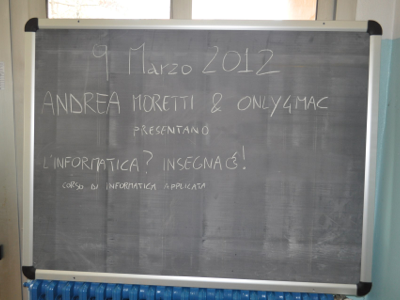 9 Marzo 2012
ANDREA MORETTI & ONLY4MAC
PRESENTANO
L'INFORMATICA? INSEGNAĆ!
CORSO DI INFORMATICA APPLICATA